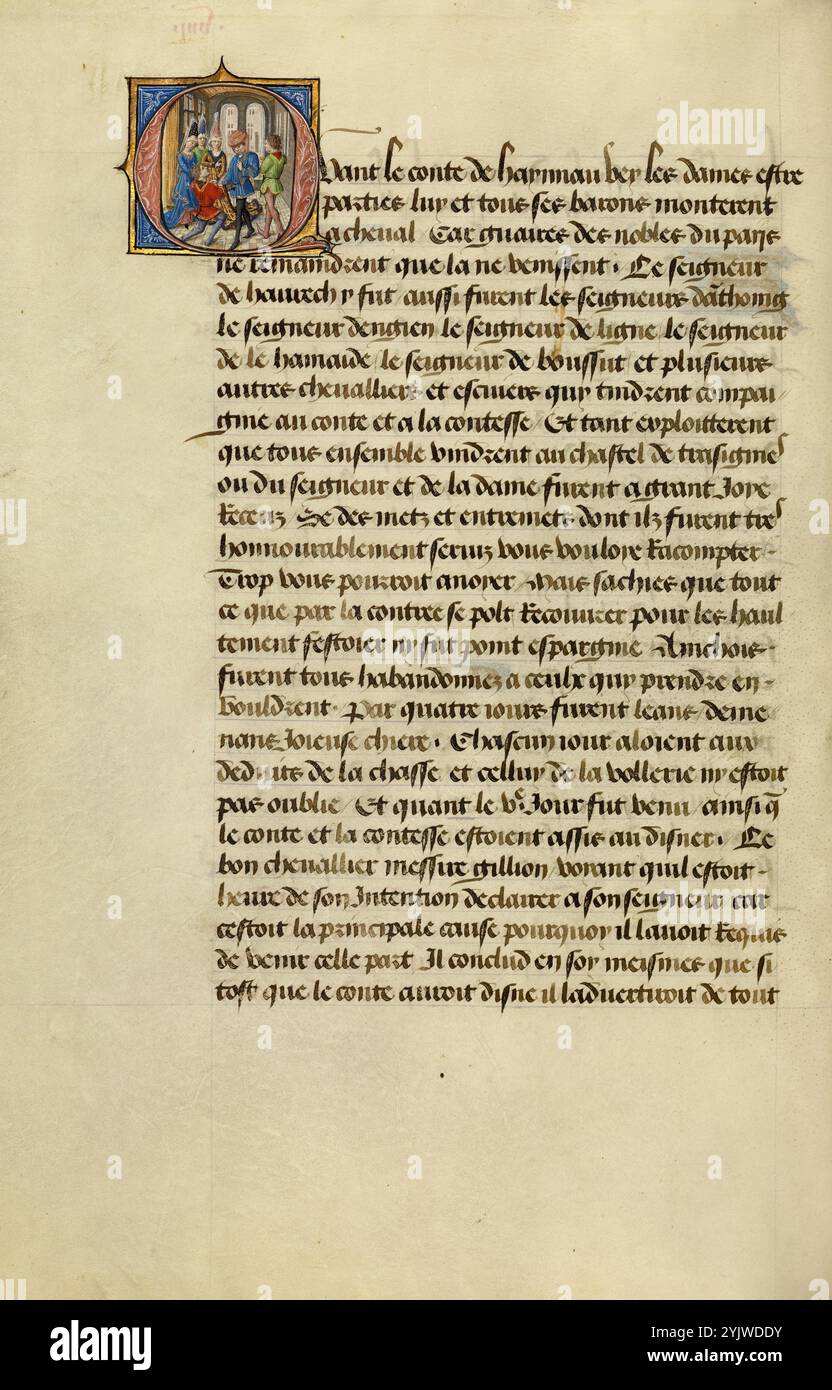 Quant le conte de haynnau vey les dames estre
parties luy et tous ses barons monterent
a cheval Car gaires des nobles du pays
ne remaindrent que la ne venissent. Le seigneur
de havrech y fut aussi furent les seigneurs danthoing
le seigneur denghien le seigneur de ligne le seigneur
de le hamaide le seigneur de boussut et plusieurs
autres chevalliers et escuiers quy tindrent compai
gnie au conte et a la contesse Et tant exploitterent
que tous ensemble vindrent au chastel de trasignies
ou du seigneur et de la dame furent a grant Joye
Receuz Se des metz et entremetz dont ilz furent tres
honnourablement serviz vous vouloye Racompter
Trop vous pourroit anoyer Mais sachies que tout
ce que par la contree se polt Recouvrer pour les haul
tement festoier ny fut point espargnie Anchois
furent tous habandonnez a ceulx quy prendre en
vouldrent. Par quatre iours furent leans deme
nans Joieuse chiere. Chascun iour aloient aux
deduits de la chasse et celluy de la vollerie ny estoit
pas oublie Et quant le ve Jour fut venu ainsi q̄
le conte et la contesse estoient assis au disner. Le
bon chevallier messire gillion voiant quil estoit
heure de son Intention declairer a son seigneur car
cestoit la principale cause pourquoy il lavoit Requis
de venir celle part Il conclud en soy meismes que si
tost que le conte auroit disne il ladvertiroit de tout
alamy
Image ID: 2YJWDDY
www.alamy.com